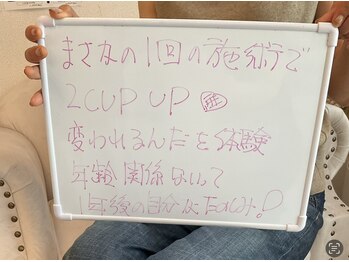 まさかの1回の施術で
2CUP UP
変われるんだを体験
年齢関係ないって
1年後の自分がたのしみ!